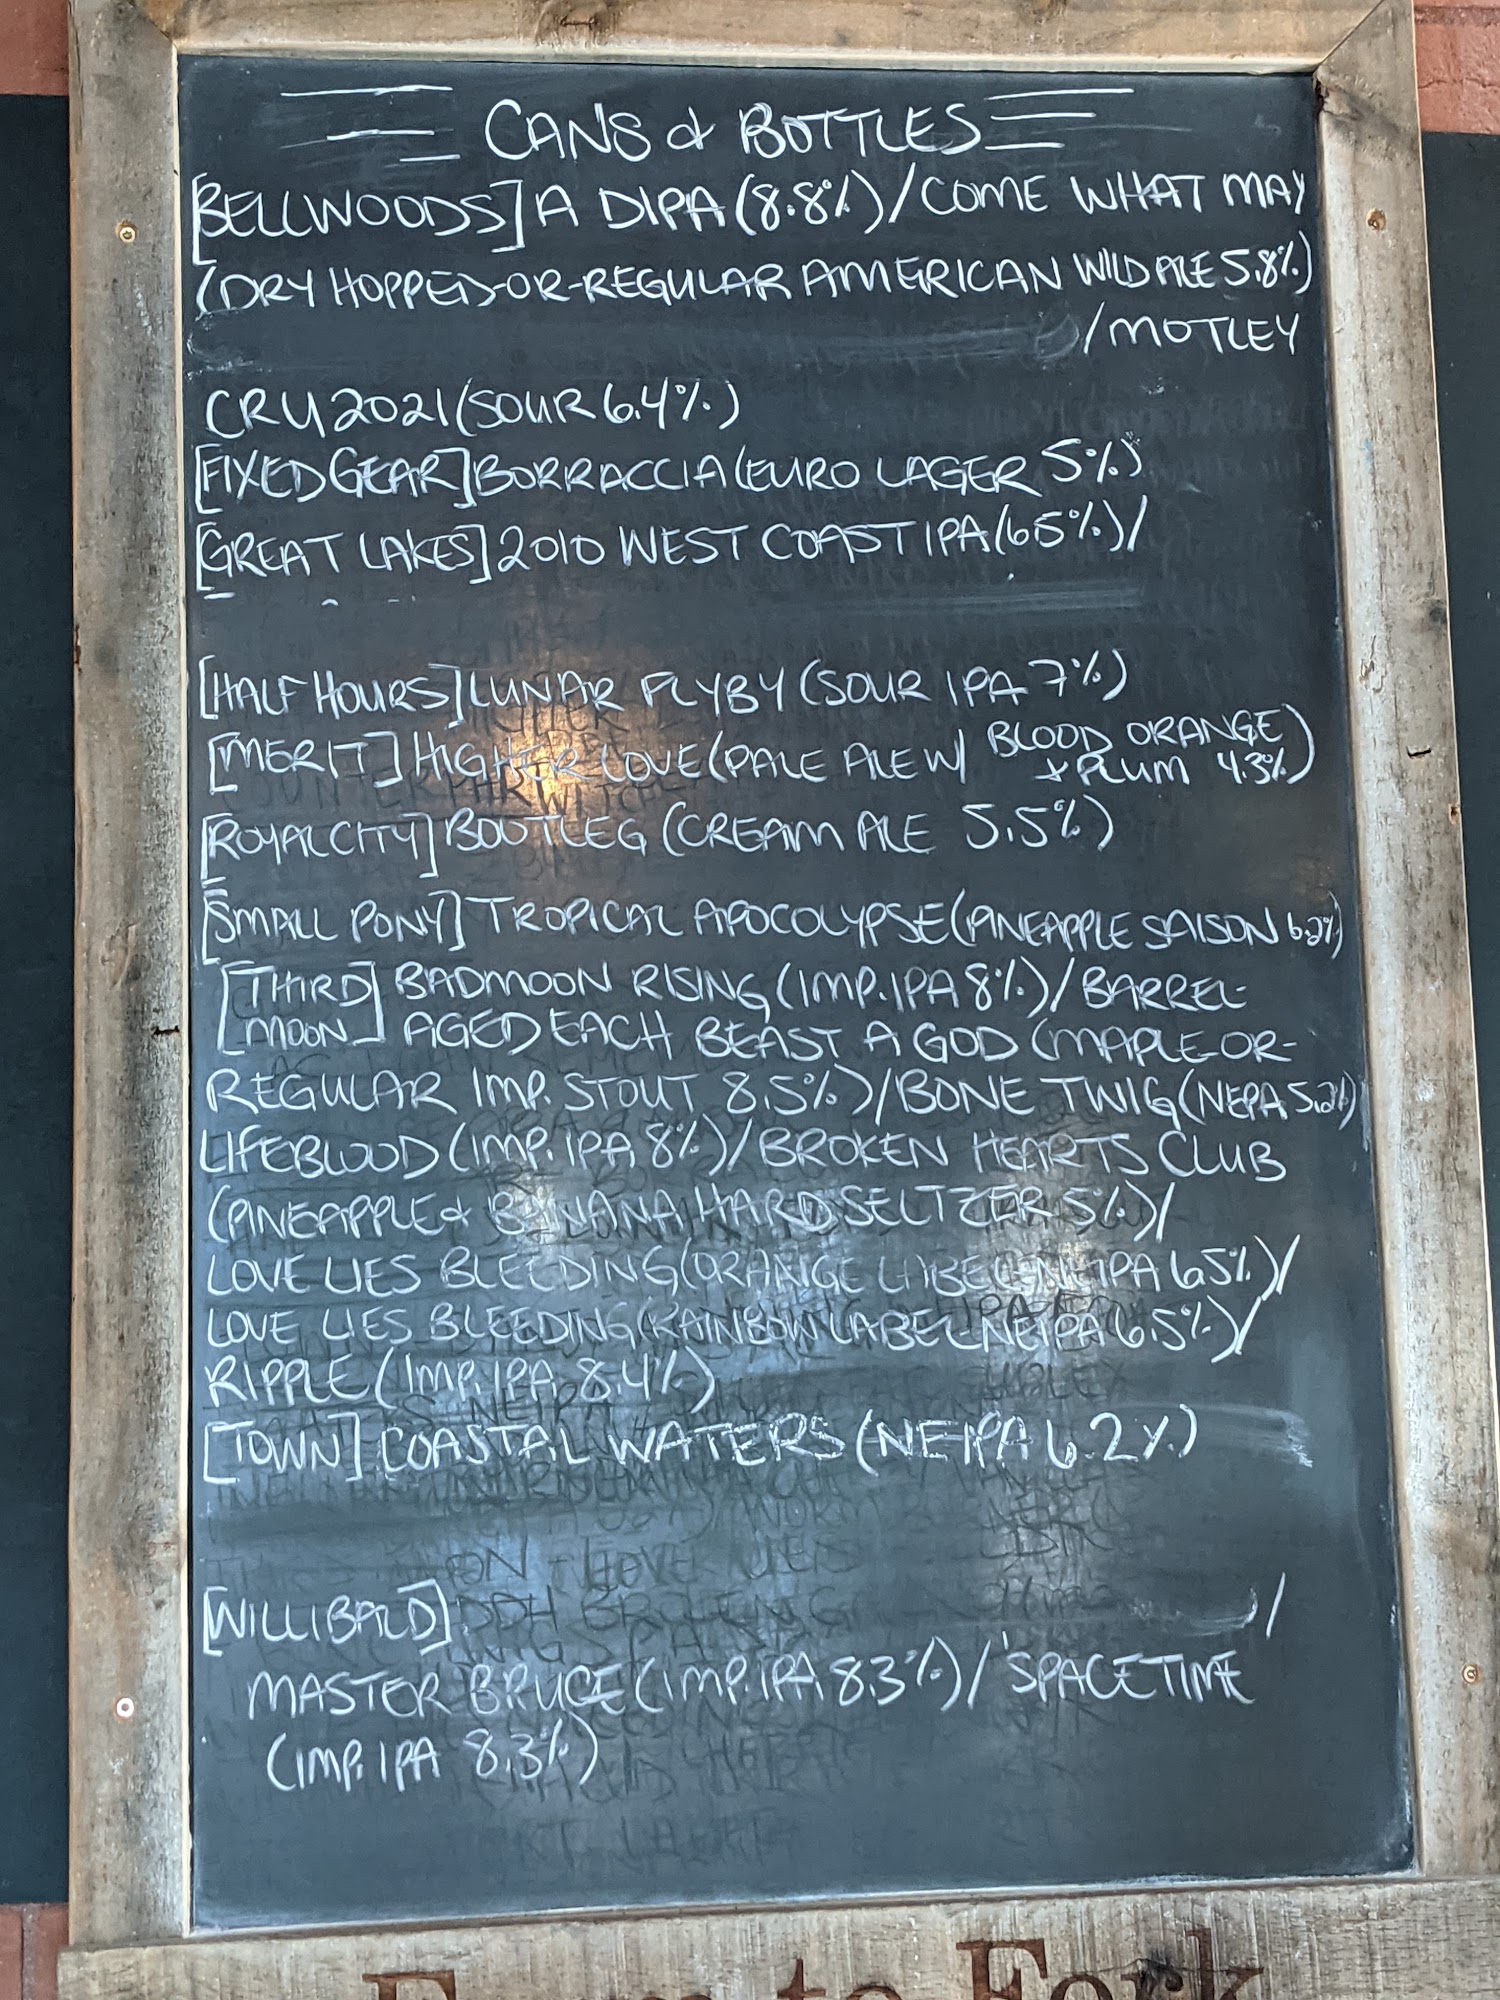 CANS & BOTTLES
[BELLWOODS] A DIPA (8.8%) / COME WHAT MAY
(DRY HOPPED-OR-REGULAR AMERICAN WILD ALE 5.8%)
/ MOTLEY
CRU 2021 (SOUR 6.4%)
[FIXED GEAR] BORRACCIA (EURO LAGER 5%)
[GREAT LAKES] 2010 WEST COAST IPA (6.5%) /
[HALF HOURS] LUNAR FLYBY (SOUR IPA 7%)
[MERIT] HIGHER LOVE (PALE ALE W/ BLOOD ORANGE
& PLUM 4.3%)
[ROYAL CITY] BOOTLEG (CREAM ALE 5.5%)
[SMALL PONY] TROPICAL APOCOLYPSE (PINEAPPLE SAISON 6.2%)
[THIRD MOON] BAD MOON RISING (IMP. IPA 8%) / BARREL-
AGED EACH BEAST A GOD (MAPLE-OR-
REGULAR IMP. STOUT 8.5%) / BONE TWIG (NEPA 5.2%)
LIFEBLOOD (IMP. IPA 8%) / BROKEN HEARTS CLUB
(PINEAPPLE & BANANA HARD SELTZER 5%) /
LOVE LIES BLEEDING (ORANGE LABEL-NEIPA 6.5%) /
LOVE LIES BLEEDING (RAINBOW LABEL-NEIPA 6.5%) /
RIPPLE (IMP. IPA 8.4%)
[TOWN] COASTAL WATERS (NEIPA 6.2%)
[WILLIBALD] /
MASTER BRUCE (IMP. IPA 8.3%) / SPACETIME
(IMP. IPA 8.3%)